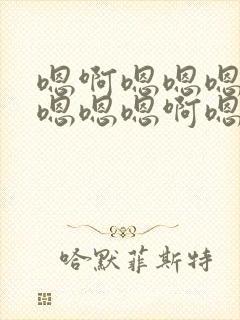 嗯啊嗯嗯嗯
嗯嗯嗯啊嗯
哈默菲斯特